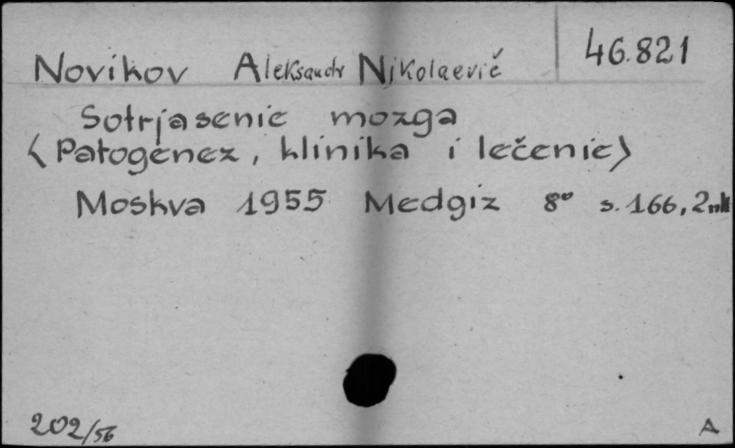 Novikov Aleksandr Nikolaevič 46.821
Sotrjasenie mozga
<Patogenez, klinika i lečenie>
Moskva 1955 Medgiz 8° s. 166, 2
202/56
A